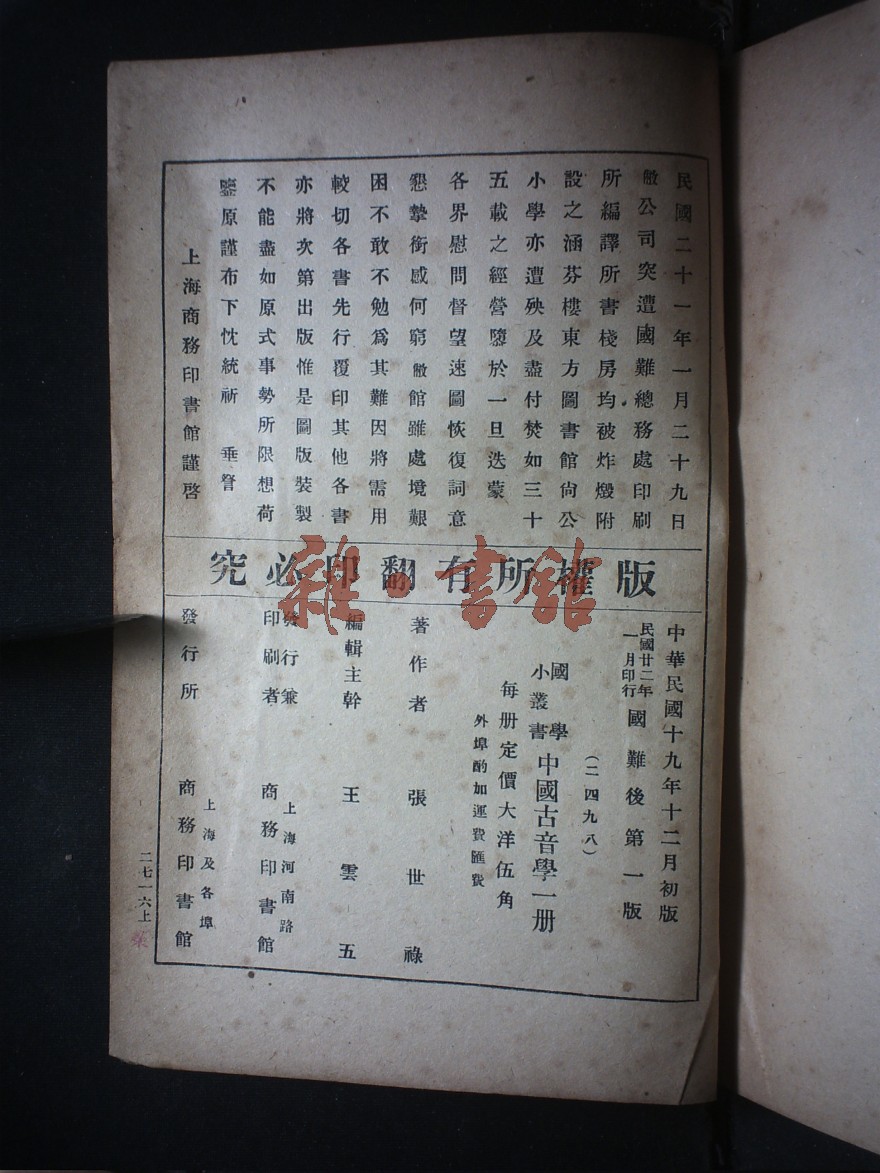 民國二十一年一月二十九日
敝公司突遭國難總務處印刷
所編譯所書棧房均被炸燬附
設之涵芬樓東方圖書館尙公
小學亦遭殃及盡付焚如三十
五載之經營隳於一旦迭蒙
各界慰問督望速圖恢復詞意
懇摯銜感何窮敝館雖處境艱
困不敢不勉爲其難因將需用
較切各書先行覆印其他各書
亦將次第出版惟是圖版裝製
不能盡如原式事勢所限想荷
鑒原謹布下忱統祈 垂詧
上海商務印書館謹啓
版權所有翻印必究
雜·書館
中華民國十九年十二月初版
民國廿二年一月印行 國難後第一版
(二四九八)
國學小叢書 中國古音學一册
每册定價大洋伍角
外埠酌加運費匯費
著作者 張世祿
編輯主幹 王雲五
發行兼印刷者 上海河南路 商務印書館
發行所 上海及各埠 商務印書館
二七一六上